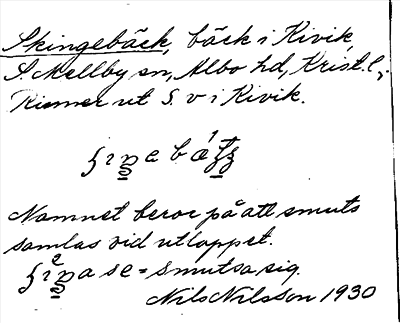 Skingebäck, bäck i Kivik,
S. Mellby sn, Albo hd, Krist. l.,
Rinner ut S. v i Kivik.
Namnet beror på att smuts
samlas vid utloppet.
= smutsa sig.
Nils Nilsson 1930